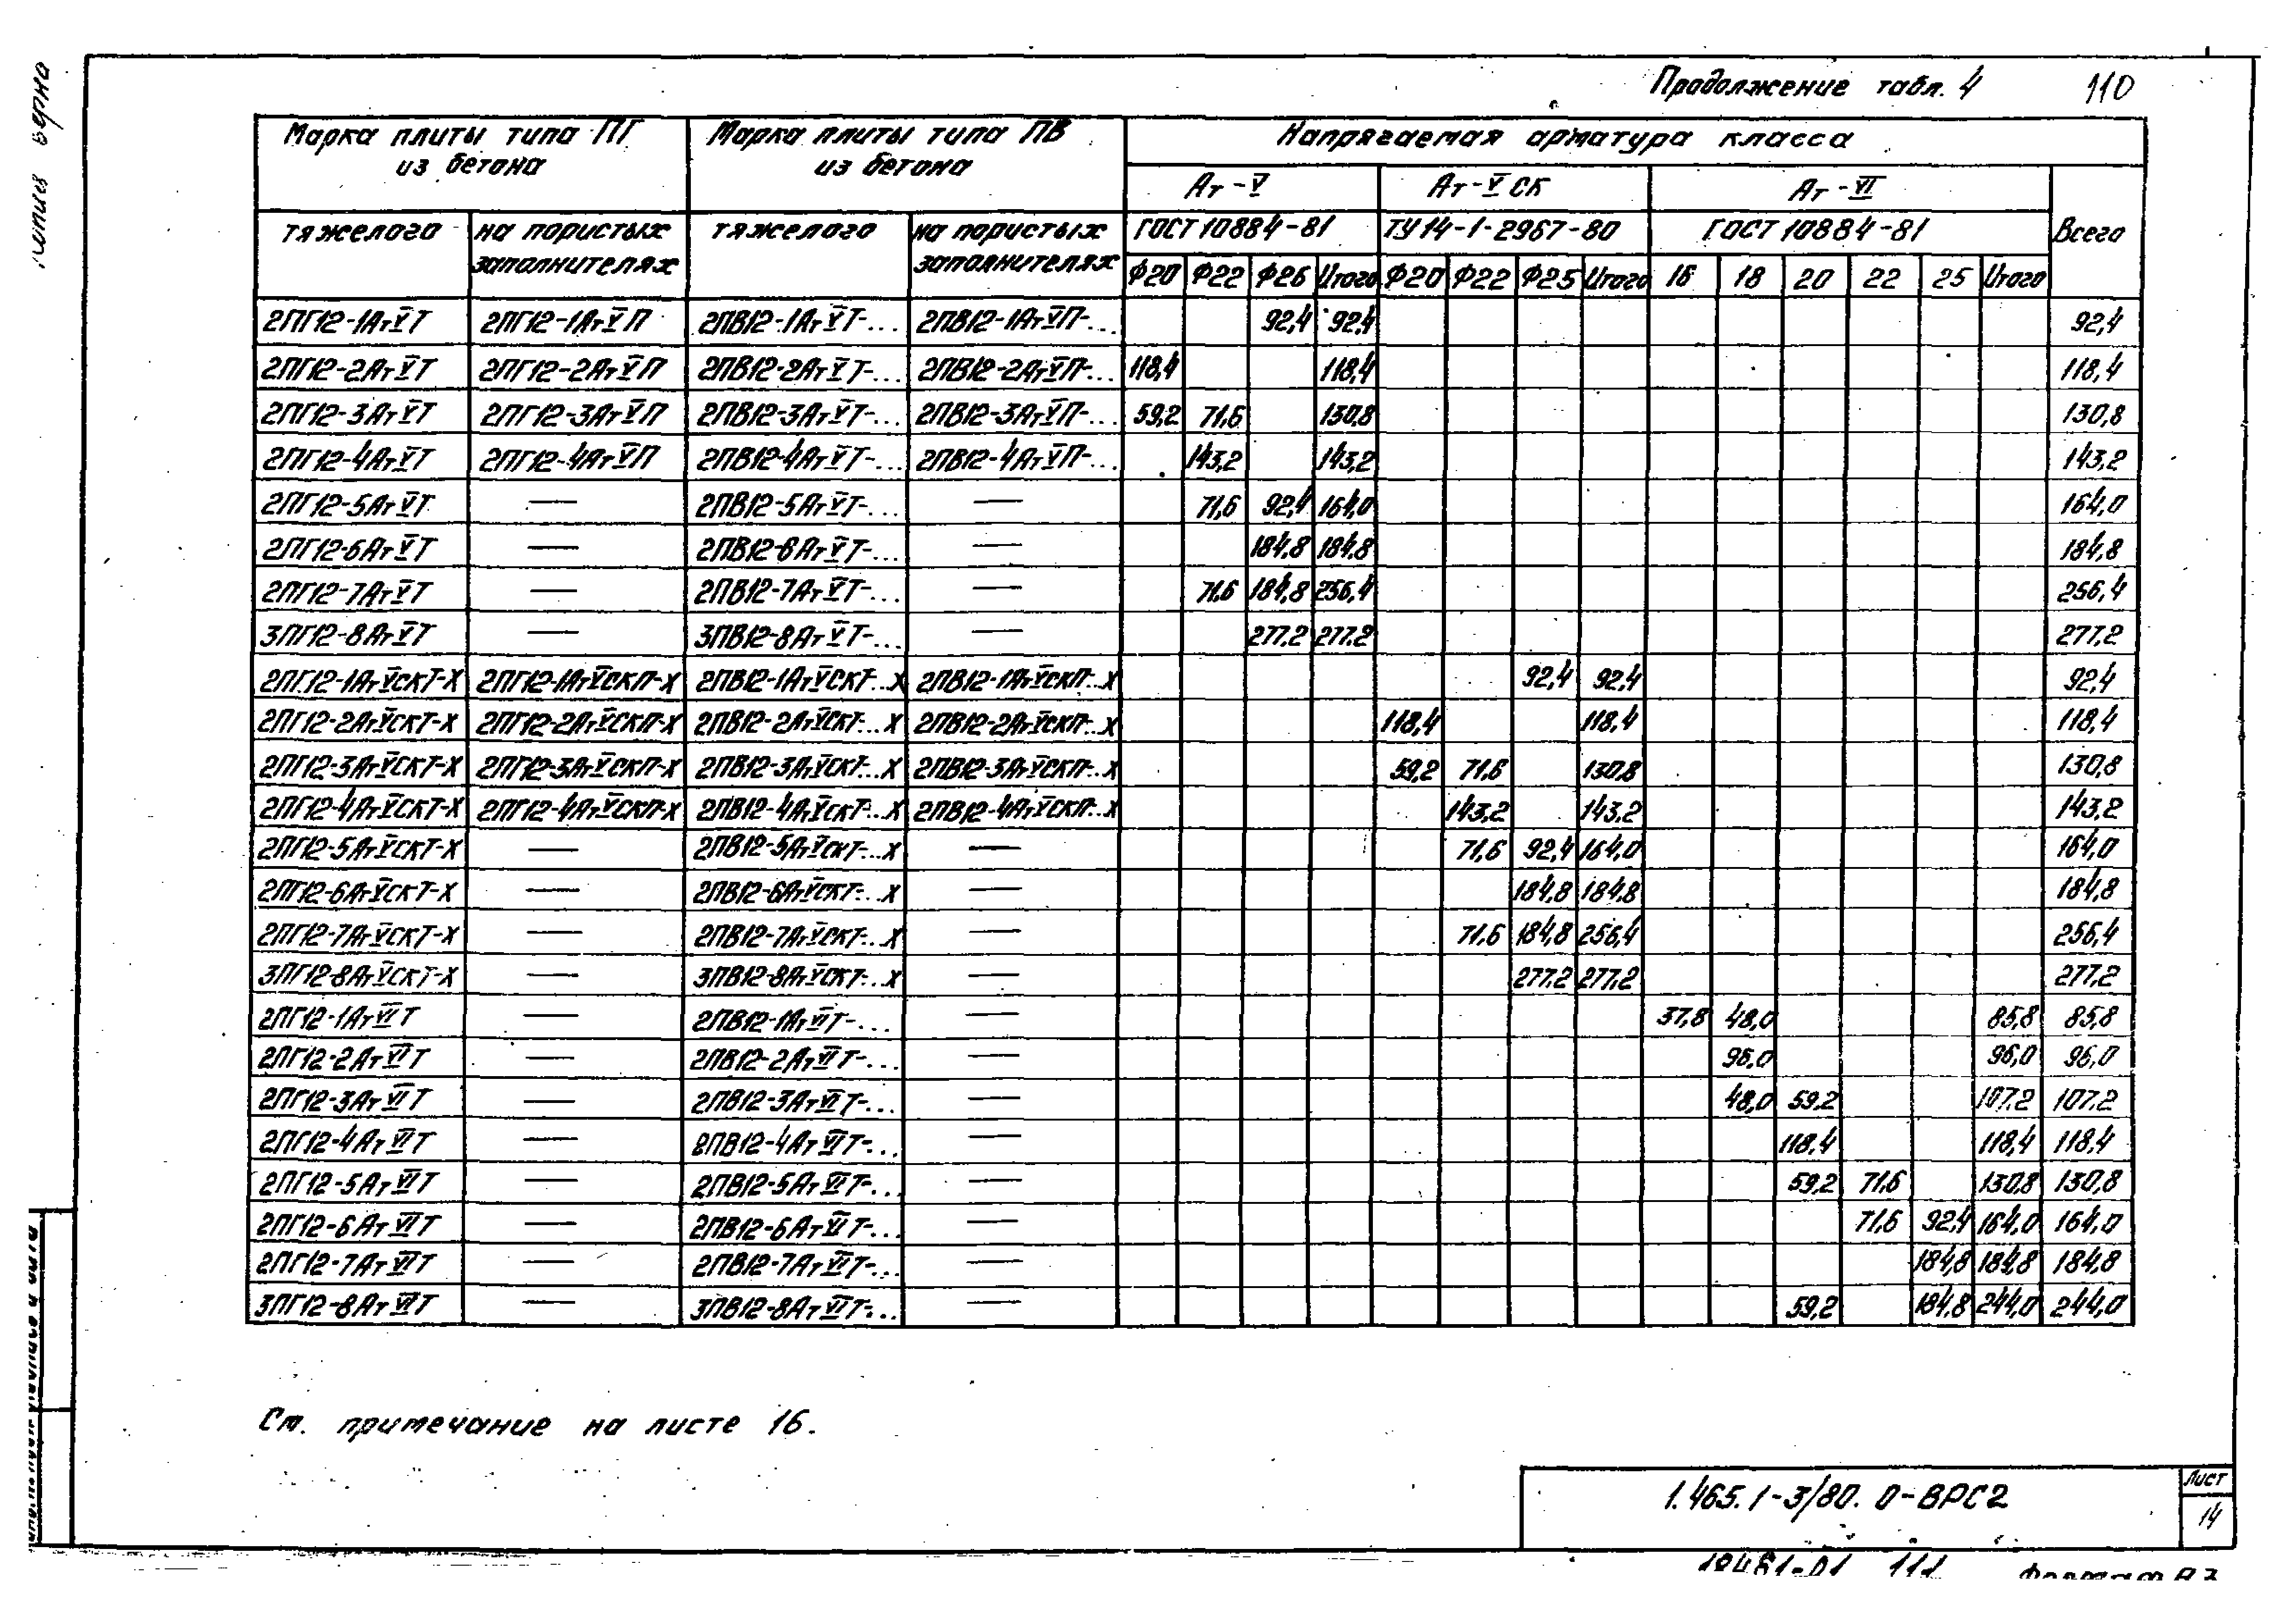 копия верна
Продолжение табл. 4 110
Марка плиты типа ПГ из бетона Марка плиты типа ПВ из бетона Напрягаемая арматура класса
Ат-V Ат-VСК Ат-VI Всего
тяжелого на пористых заполнителях тяжелого на пористых заполнителях ГОСТ 10884-81 ТУ14-1-2967-80 ГОСТ 10884-81
Ф20 Ф22 Ф26 Итого Ф20 Ф22 Ф25 Итого 16 18 20 22 25 Итого
2ПГ12-1АтVТ 2ПГ12-1АтVП 2ПВ12-1АтVТ-... 2ПВ12-1АтVП-... 92,4 92,4 92,4
2ПГ12-2АтVТ 2ПГ12-2АтVП 2ПВ12-2АтVТ-... 2ПВ12-2АтVП-... 118,4 118,4 118,4
2ПГ12-3АтVТ 2ПГ12-3АтVП 2ПВ12-3АтVТ-... 2ПВ12-3АтVП-... 59,2 71,6 130,8 130,8
2ПГ12-4АтVТ 2ПГ12-4АтVП 2ПВ12-4АтVТ-... 2ПВ12-4АтVП-... 143,2 143,2 143,2
2ПГ12-5АтVТ — 2ПВ12-5АтVТ-... — 71,6 92,4 164,0 164,0
2ПГ12-6АтVТ — 2ПВ12-6АтVТ-... — 184,8 184,8 184,8
2ПГ12-7АтVТ — 2ПВ12-7АтVТ-... — 71,6 184,8 256,4 256,4
3ПГ12-8АтVТ — 3ПВ12-8АтVТ-... — 277,2 277,2 277,2
2ПГ12-1АтVСКТ-Х 2ПГ12-1АтVСКП-Х 2ПВ12-1АтVСКТ-...Х 2ПВ12-1АтVСКП-...Х 92,4 92,4 92,4
2ПГ12-2АтVСКТ-Х 2ПГ12-2АтVСКП-Х 2ПВ12-2АтVСКТ-...Х 2ПВ12-2АтVСКП-...Х 118,4 118,4 118,4
2ПГ12-3АтVСКТ-Х 2ПГ12-3АтVСКП-Х 2ПВ12-3АтVСКТ-...Х 2ПВ12-3АтVСКП-...Х 59,2 71,6 130,8 130,8
2ПГ12-4АтVСКТ-Х 2ПГ12-4АтVСКП-Х 2ПВ12-4АтVСКТ-...Х 2ПВ12-4АтVСКП-...Х 143,2 143,2 143,2
2ПГ12-5АтVСКТ-Х — 2ПВ12-5АтVСКТ-...Х — 71,6 92,4 164,0 164,0
2ПГ12-6АтVСКТ-Х — 2ПВ12-6АтVСКТ-...Х — 184,8 184,8 184,8
2ПГ12-7АтVСКТ-Х — 2ПВ12-7АтVСКТ-...Х — 71,6 184,8 256,4 256,4
3ПГ12-8АтVСКТ-Х — 3ПВ12-8АтVСКТ-...Х — 277,2 277,2 277,2
2ПГ12-1АтVIТ — 2ПВ12-1АтVIТ-... — 37,8 48,0 85,8 85,8
2ПГ12-2АтVIТ — 2ПВ12-2АтVIТ-... — 96,0 96,0 96,0
2ПГ12-3АтVIТ — 2ПВ12-3АтVIТ-... — 48,0 59,2 107,2 107,2
2ПГ12-4АтVIТ — 2ПВ12-4АтVIТ-... — 118,4 118,4 118,4
2ПГ12-5АтVIТ — 2ПВ12-5АтVIТ-... — 59,2 71,6 130,8 130,8
2ПГ12-6АтVIТ — 2ПВ12-6АтVIТ-... — 71,6 92,4 164,0 164,0
2ПГ12-7АтVIТ — 2ПВ12-7АтVIТ-... — 184,8 184,8 184,8
3ПГ12-8АтVIТ — 3ПВ12-8АтVIТ-... — 59,2 184,8 244,0 244,0
См. примечание на листе 16.
1.465.1-3/80. 0-ВРС2 Лист
14
111 Формат А3